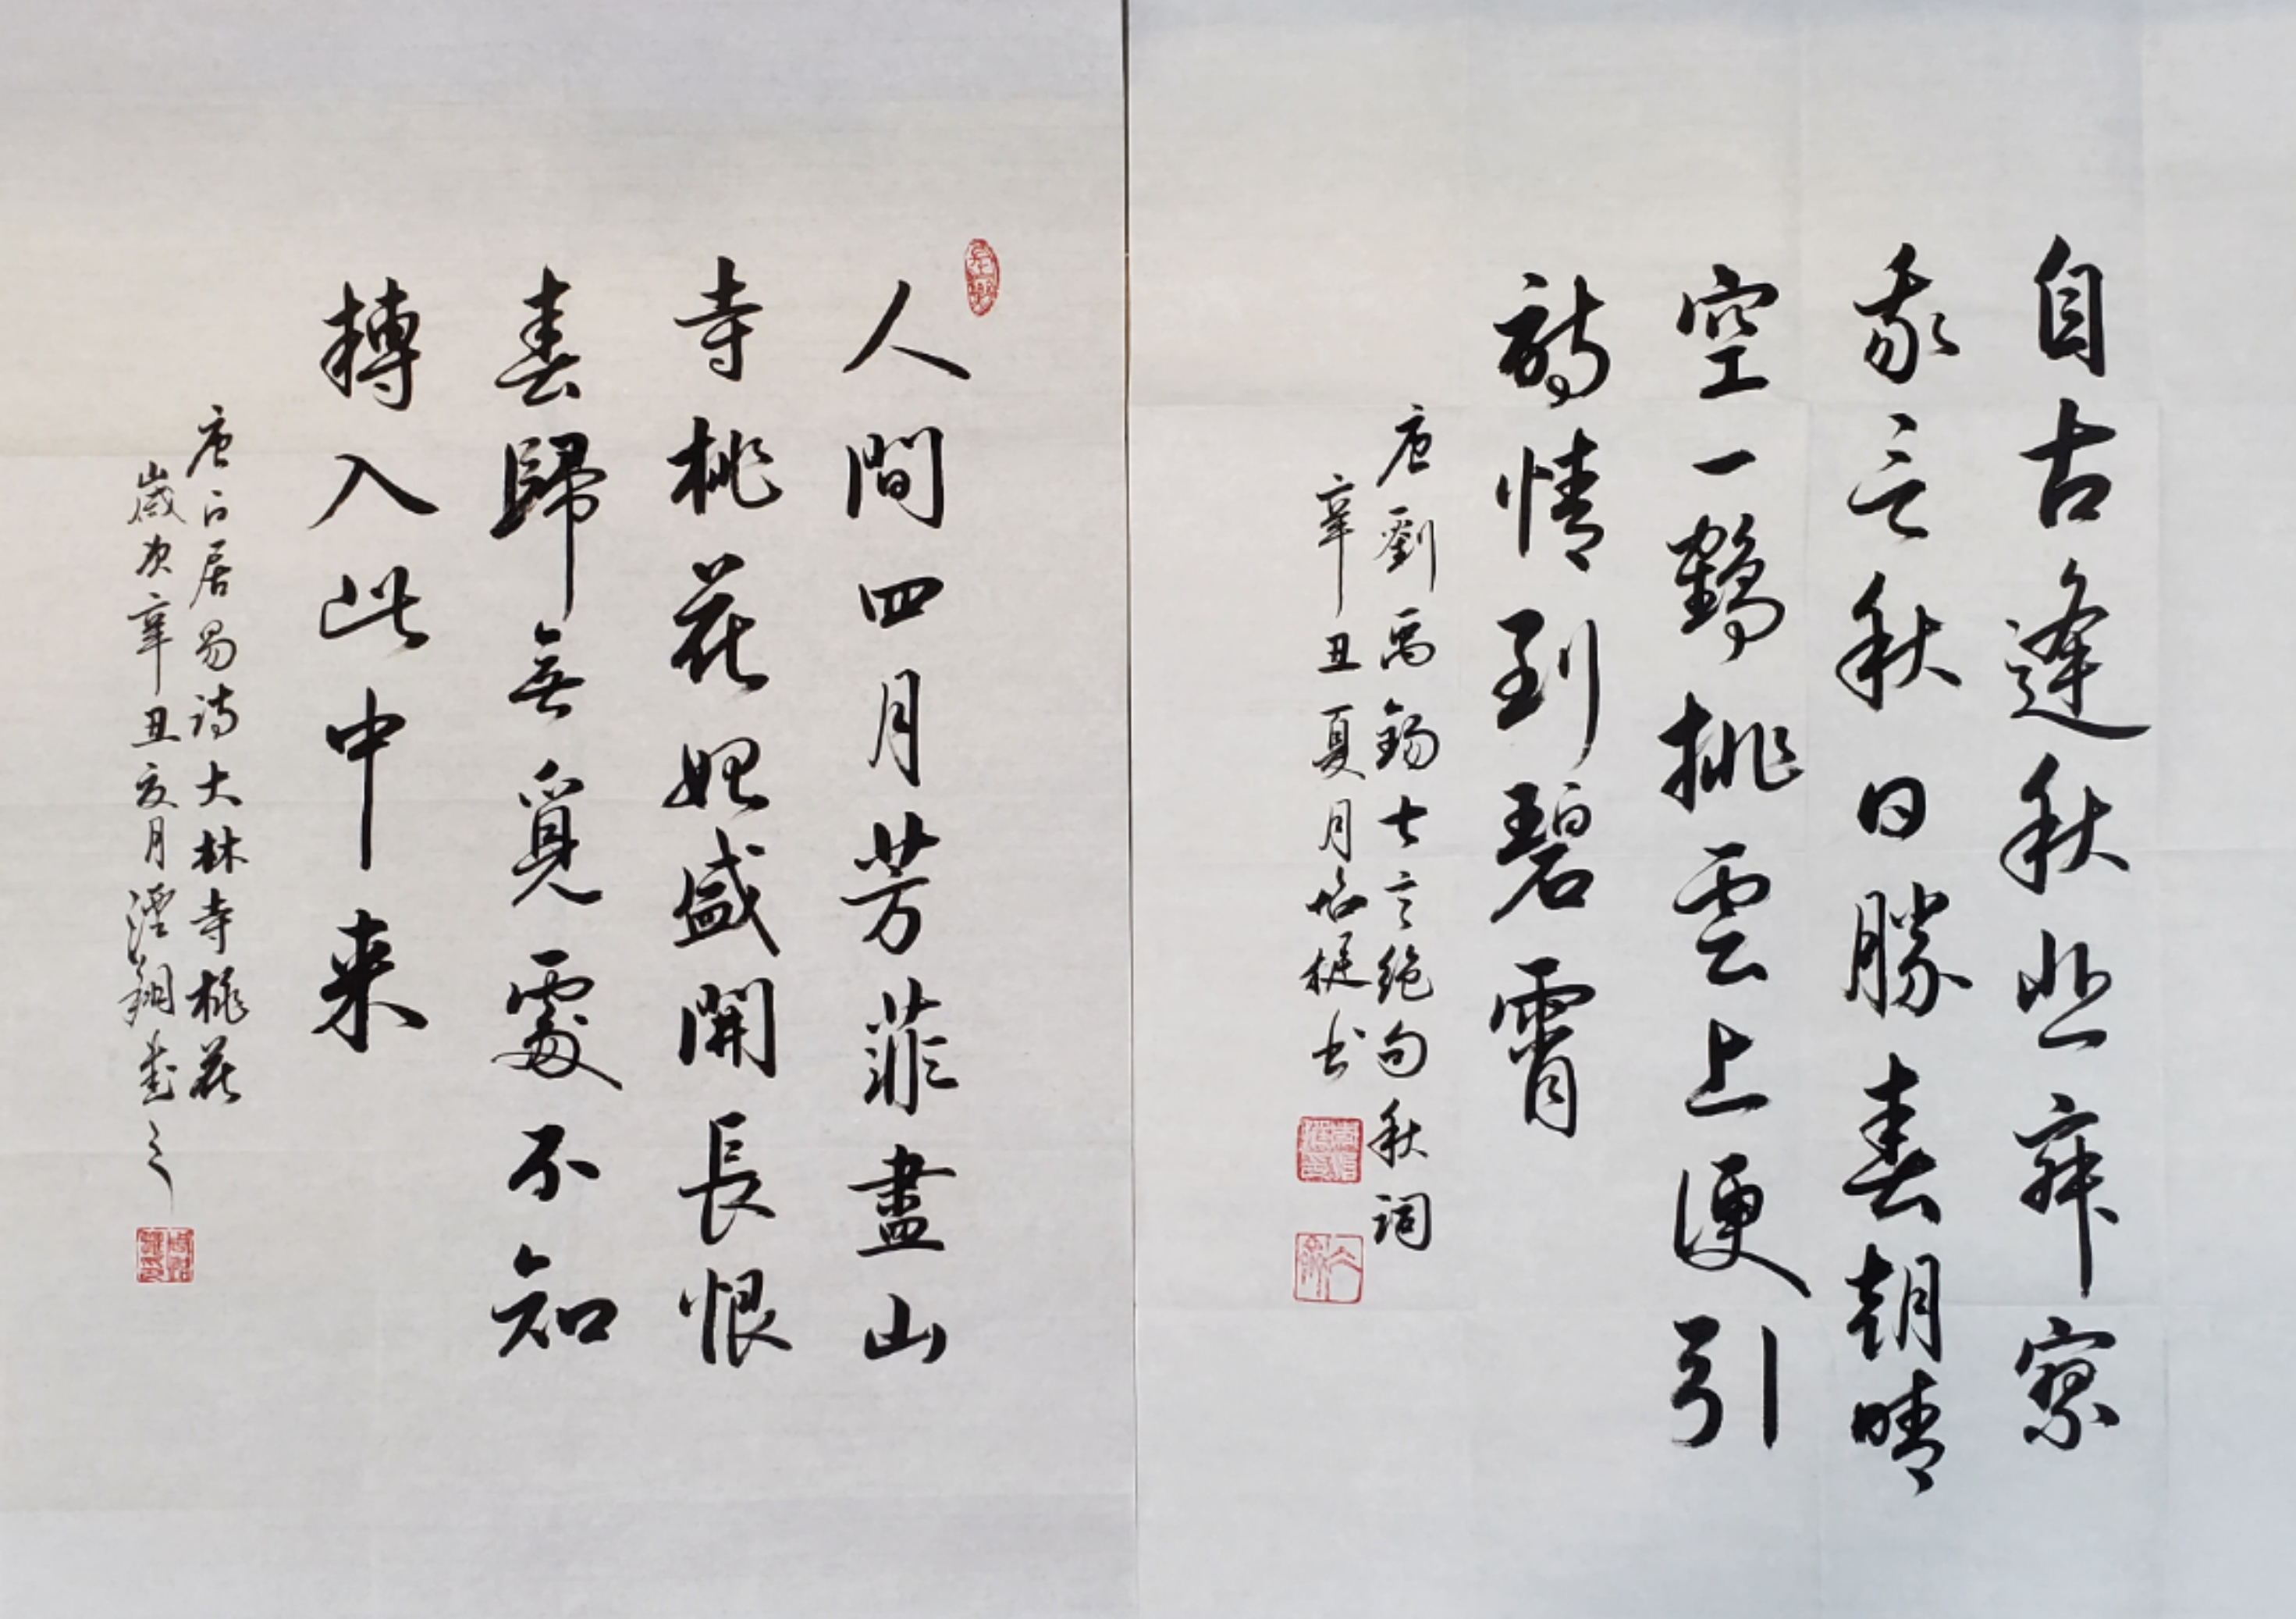 自古逢秋悲寂寥
我言秋日勝春朝晴
空一鶴排雲上便引
詩情到碧霄
唐劉禹錫七言絕句秋詞
辛丑夏月 書
人間四月芳菲盡山
寺桃花始盛開長恨
春歸無覓處不知
轉入此中来
唐白居易詩大林寺桃花
歲次辛丑夏月 翔書之